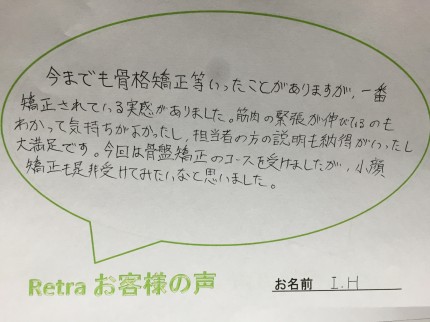 今までも骨格矯正等いったことがありますが、一番
矯正されている実感がありました。筋肉の緊張が伸びているのも
わかって気持ちがよかったし、担当者の方の説明も納得がいったし
大満足です。今回は骨盤矯正のコースを受けましたが、小顔
矯正も是非受けてみたいなと思いました。
Retra お客様の声
お名前 I.H